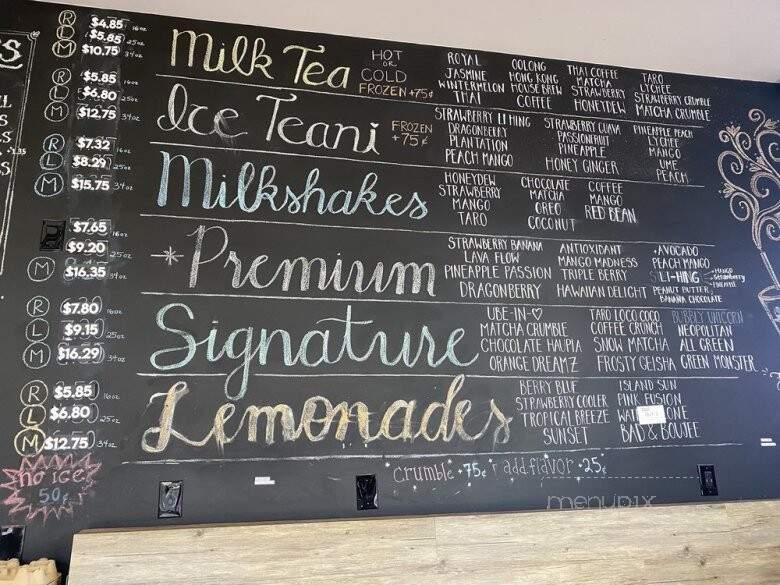 R $4.85 16oz
L $5.85 25oz
M $10.75 34oz
Milk Tea
HOT
OR
COLD
FROZEN +75¢
ROYAL
JASMINE
WINTERMELON
THAI
OOLONG
HONG KONG
HOUSE BREW
COFFEE
THAI COFFEE
MATCHA
STRAWBERRY
HONEYDEW
TARO
LYCHEE
STRAWBERRY CRUMBLE
MATCHA CRUMBLE
R $5.85 16oz
L $6.80 25oz
M $12.75 34oz
Ice Teani
FROZEN
+75¢
STRAWBERRY LI HING
DRAGONBERRY
PLANTATION
PEACH MANGO
STRAWBERRY GUAVA
PASSIONFRUIT
PINEAPPLE
HONEY GINGER
PINEAPPLE PEACH
LYCHEE
MANGO
UME
PEACH
R $7.32 16oz
L $8.29 25oz
M $15.75 34oz
Milkshakes
HONEYDEW
STRAWBERRY
MANGO
TARO
CHOCOLATE
MATCHA
OREO
COCONUT
COFFEE
MANGO
RED BEAN
$7.65 16oz
$9.20 25oz
M $16.35 34oz
*Premium
STRAWBERRY BANANA
LAVA FLOW
PINEAPPLE PASSION
DRAGONBERRY
ANTIOXIDANT
MANGO MADNESS
TRIPLE BERRY
HAWAIIAN DELIGHT
+AVOCADO
PEACH MANGO
LI-HING
MANGO
Strawberry
PINEAPPLE
PEANUT BUTTER
BANANA CHOCOLATE
R $7.80 16oz
L $9.15 25oz
M $16.29 34oz
Signature
UBE-IN-♡
MATCHA CRUMBLE
CHOCOLATE HAUPIA
ORANGE DREAMZ
TARO LOCO COCO
COFFEE CRUNCH
SNOW MATCHA
FROSTY GEISHA
BUBBLY UNICORN
NEOPOLITAN
ALL GREEN
GREEN MONSTER
R $5.85 16oz
L $6.80 25oz
M $12.75 34oz
Lemonades
BERRY BLUE
STRAWBERRY COOLER
TROPICAL BREEZE
SUNSET
ISLAND SUN
PINK FUSION
BAD & BOUJEE
no ice
50¢
crumble +75¢ add flavor +25¢
menupix